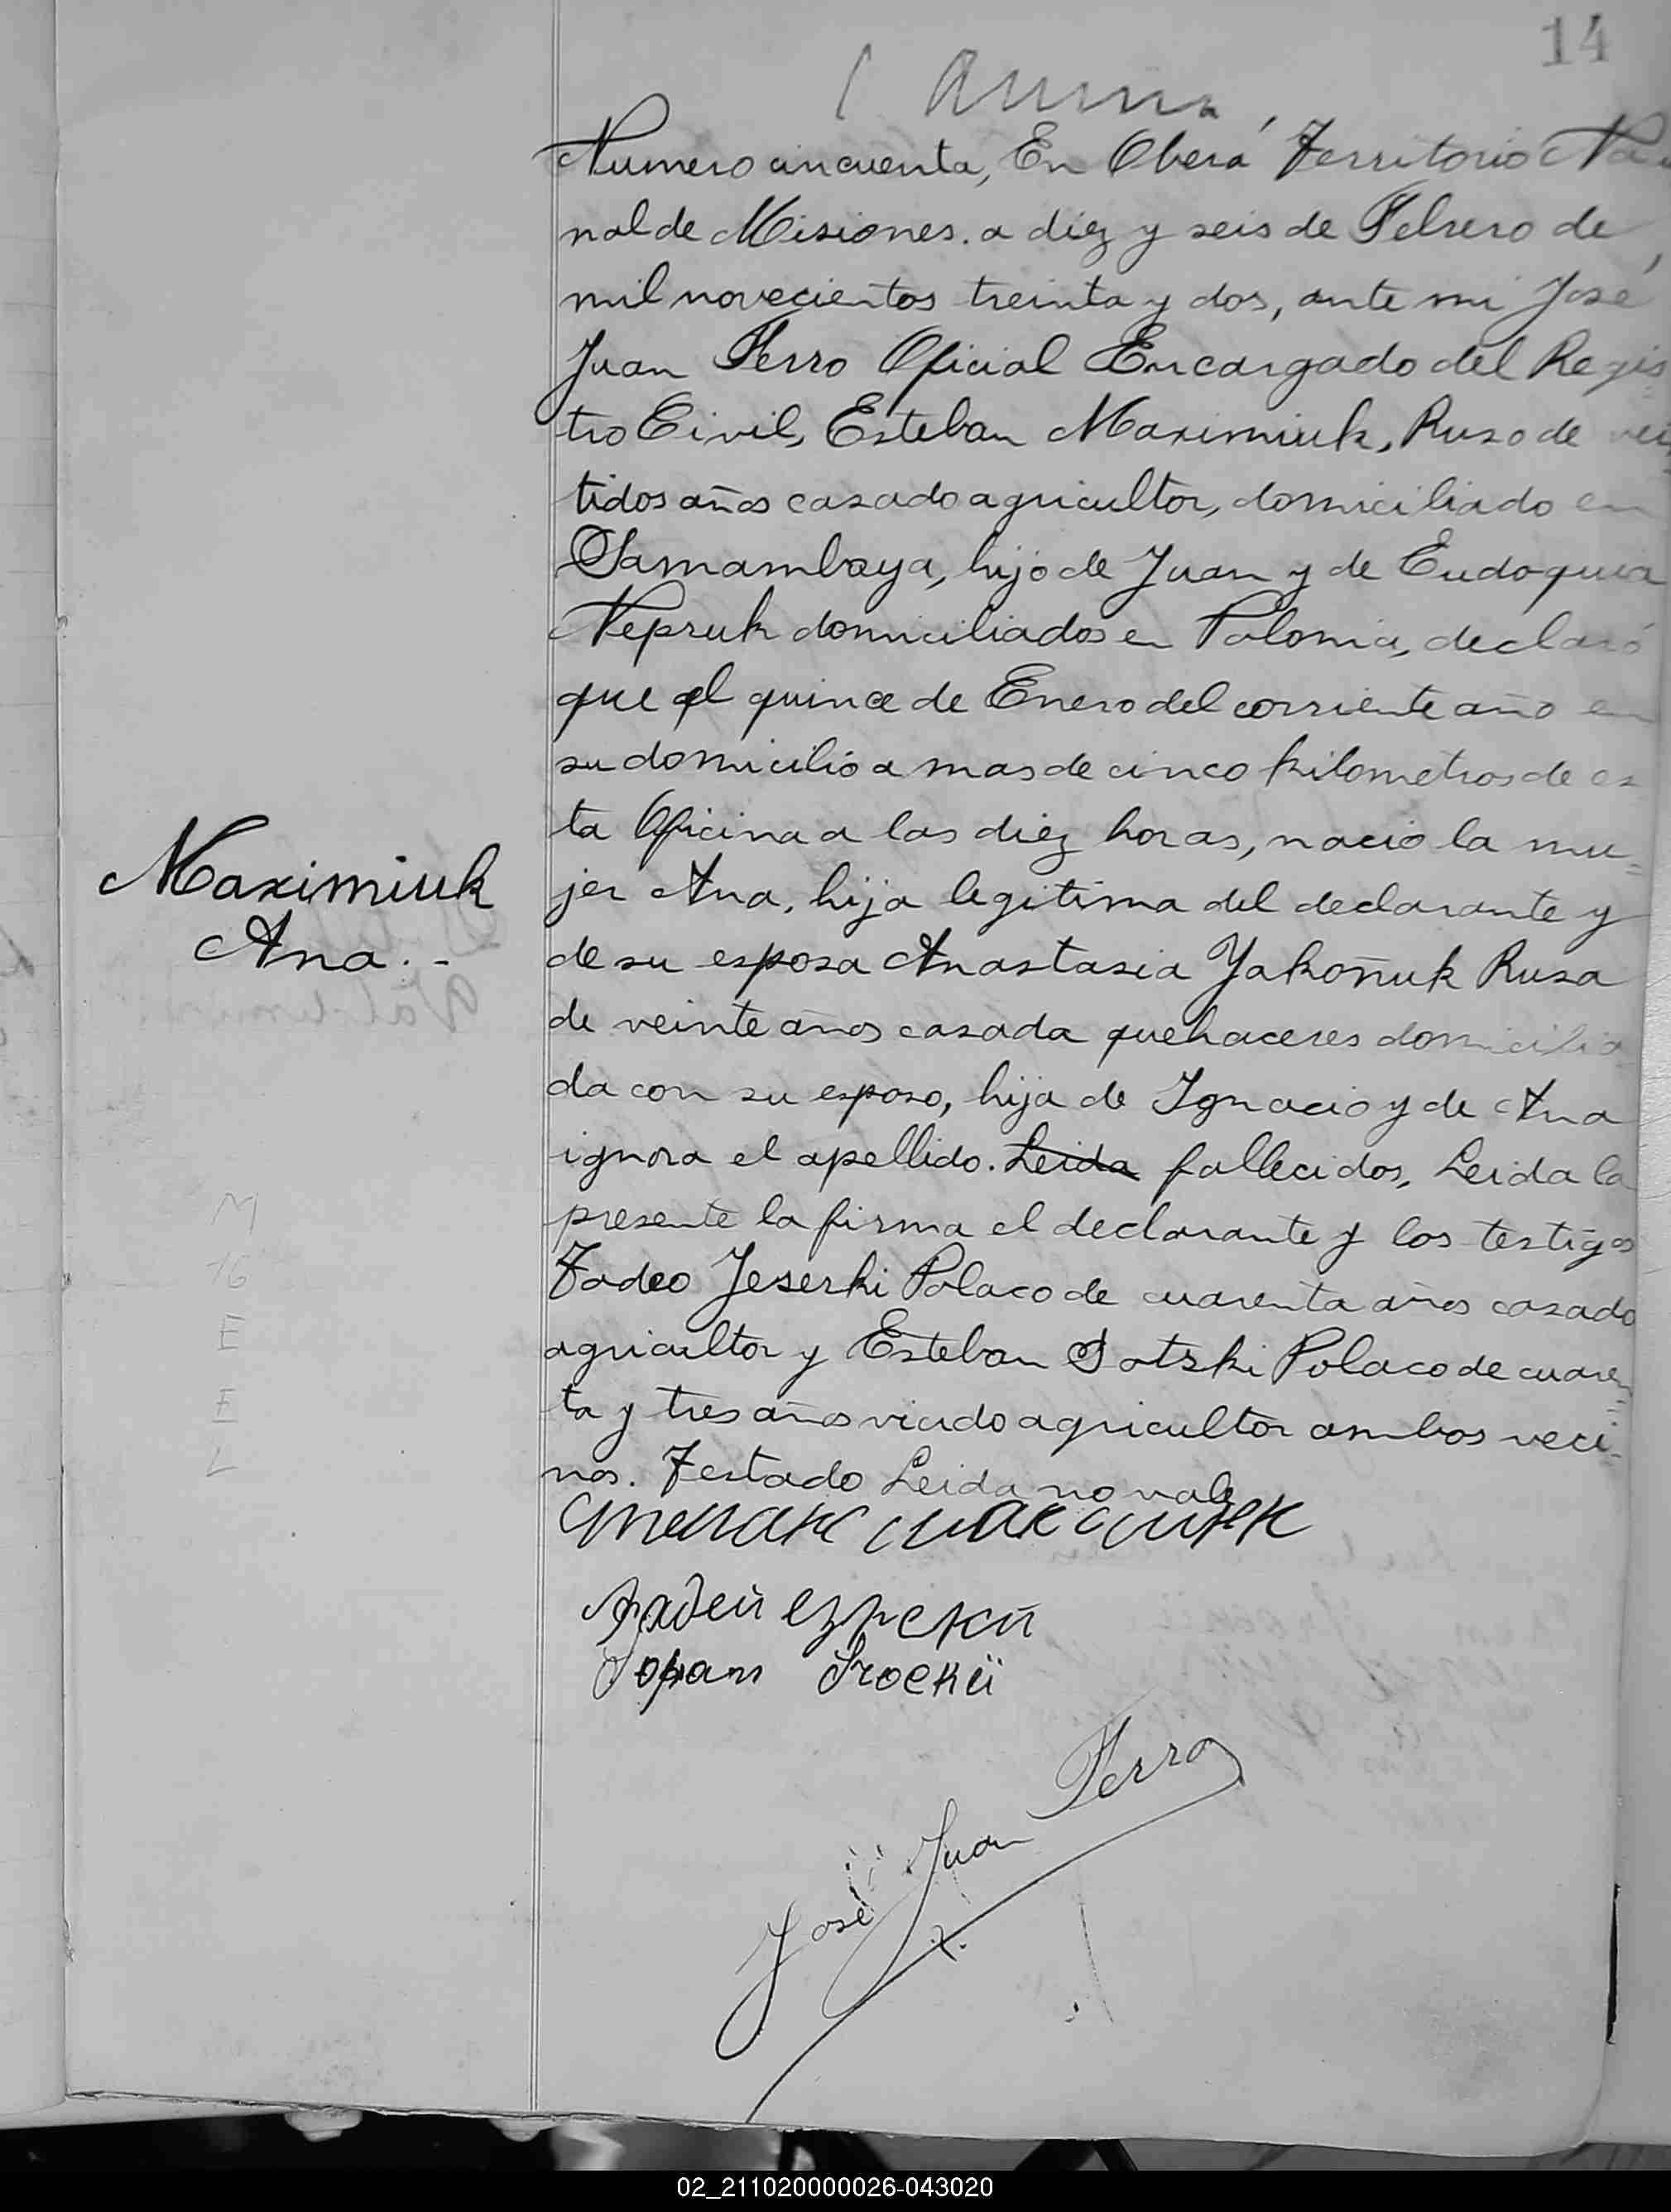 14
Numero cincuenta, En Oberá Territorio Na
nal de Misiones. a diez y seis de Febrero de
mil novecientos treinta y dos, ante mi José
Juan Ferro Oficial Encargado del Regis
tro Civil, Esteban Maximiuk, Ruso de vein
tidos años casado agricultor, domiciliado en
Samambaya, hijo de Juan y de Eudoquia
Nepruk domiciliados en Polonia, declaró
que el quince de Enero del corriente año en
su domicilio a mas de cinco kilometros de es
ta Oficina a las diez horas, nacio la mu=
Maximiuk
jer Ana, hija legitima del declarante y
Ana. -
de su esposa Anastasia Yakoñuk Rusa
de veinte años casada quehaceres domicilia
da con su esposo, hija de Ignacio y de Ana
ignora el apellido. Leida fallecidos, Leida la
presente la firma el declarante y los testigos
M
16
E
E
L
Tadeo Jeserki Polaco de cuarenta años casado
agricultor y Esteban Sotski Polaco de cuaren
ta y tres años viudo agricultor ambos veci-
nos. Testado Leida no vale
José Juan Ferro
02_211020000026-043020